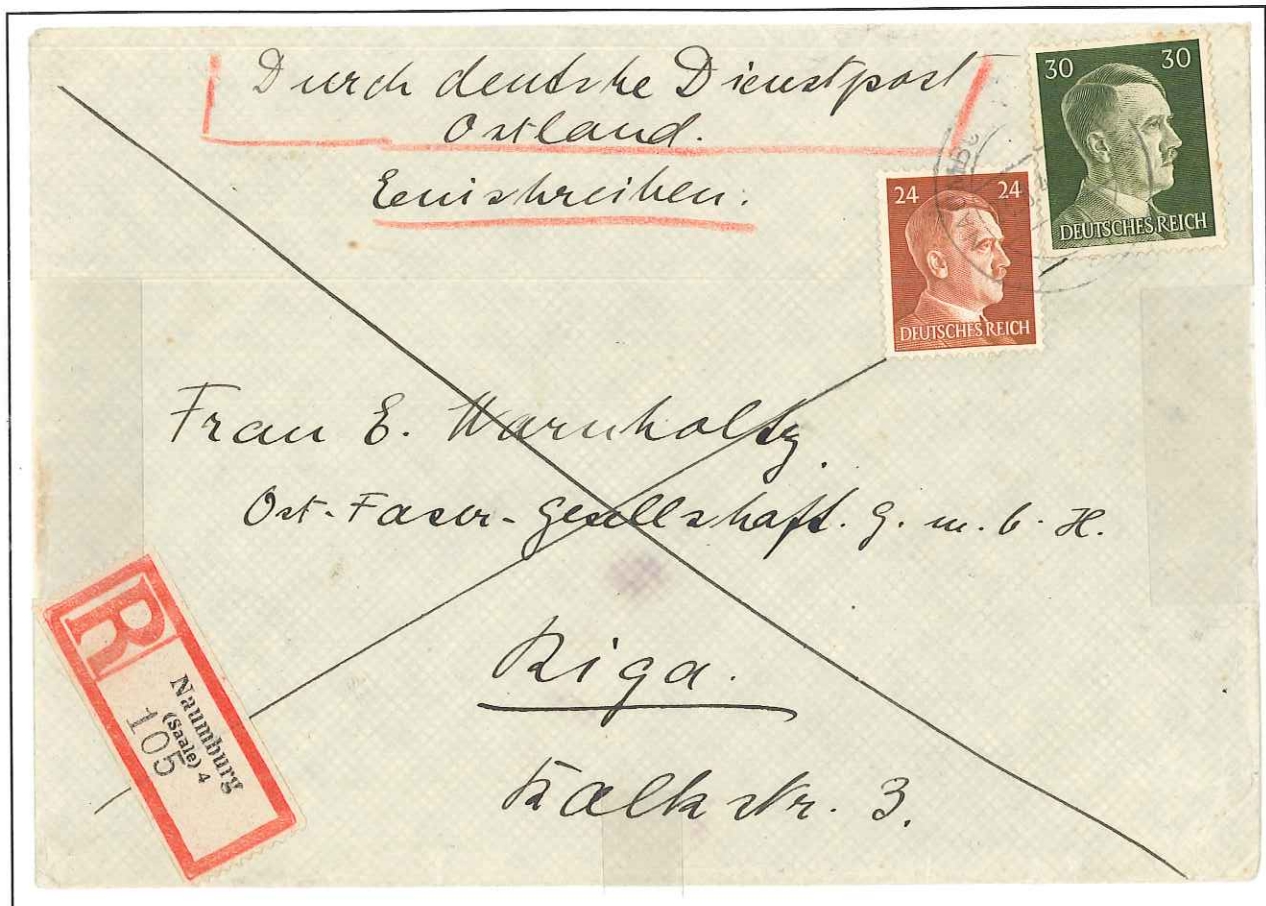 Durch deutsche Dienstpost
Ostland.
Einschreiben.
30 30
DEUTSCHES REICH
24 24
DEUTSCHES REICH
Frau E. Warnholtz
Ost-Faser-Gesellschaft. G. m. b. H.
Riga.
Kalkstr. 3.
R
Naumburg
(Saale) 4
105